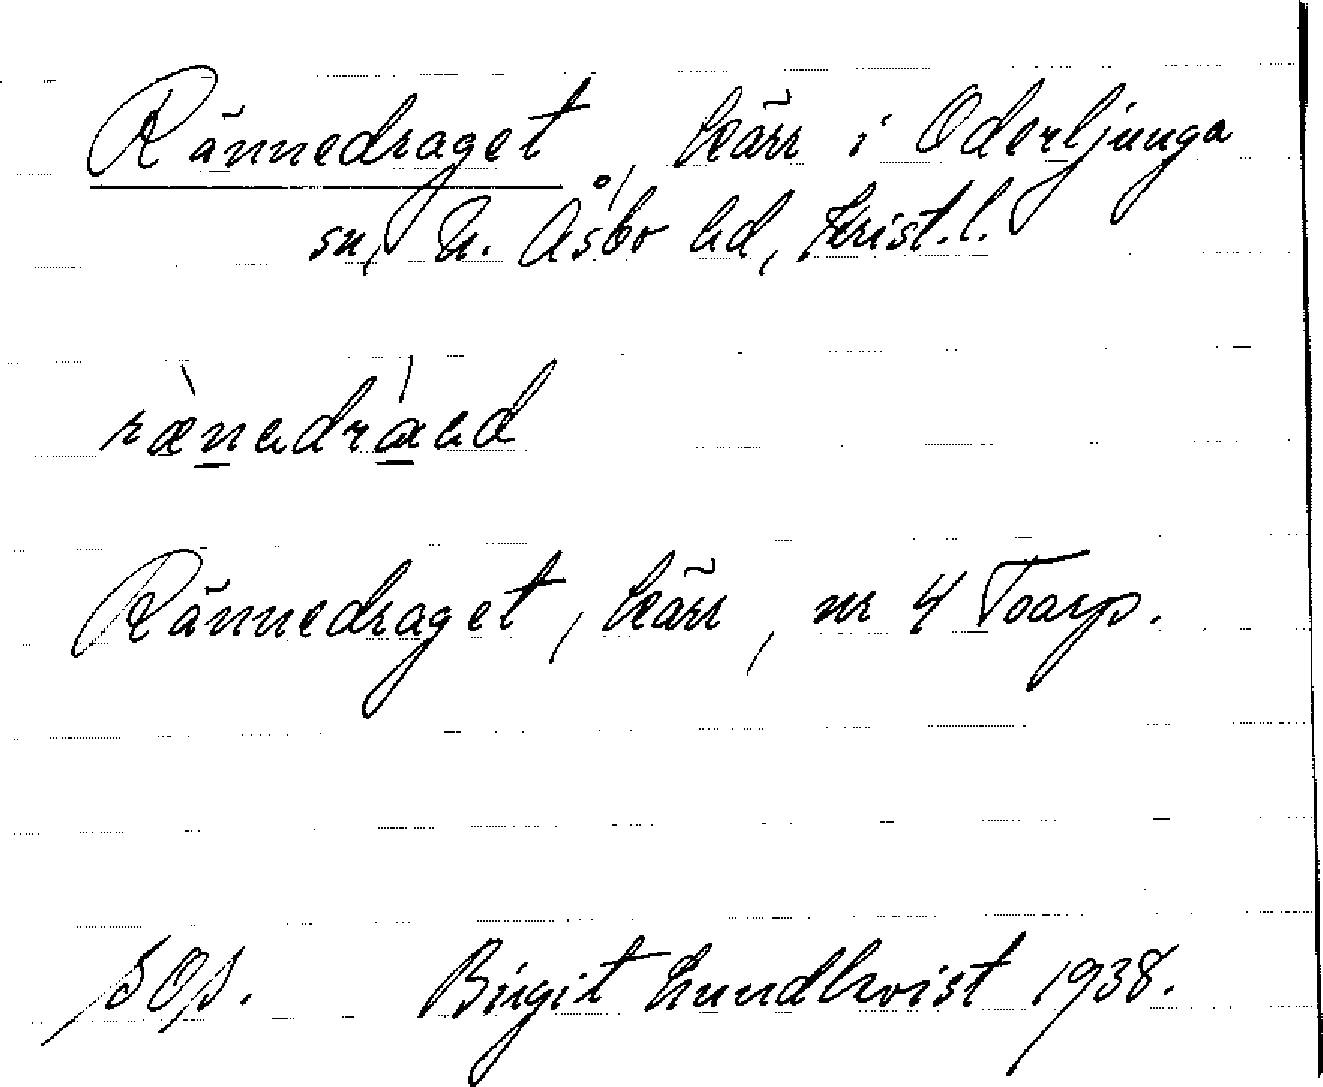 Rännedraget, kärr i Oderljunga
sn, N. Åsbo hd, Krist. l.
rænadràad
Rännedraget, kärr, nr 4 Toarp.
SOf. Birgit Lundkvist 1938.